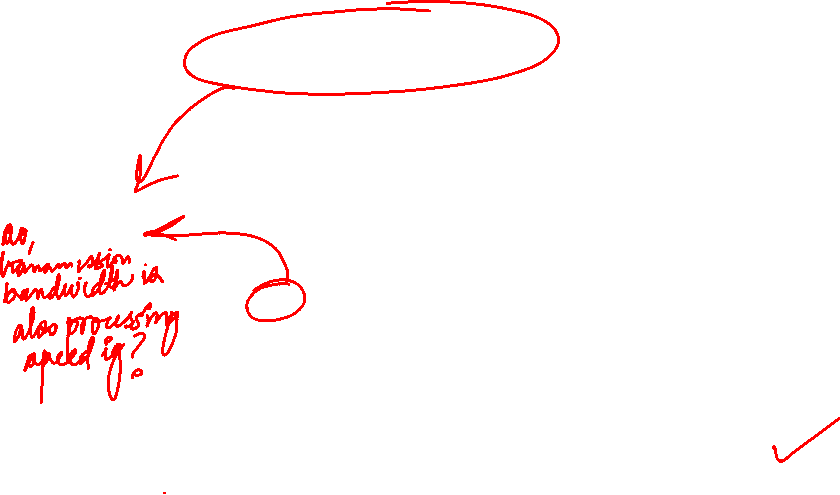 so,
transmission
bandwidth is
also processing
speed ig?